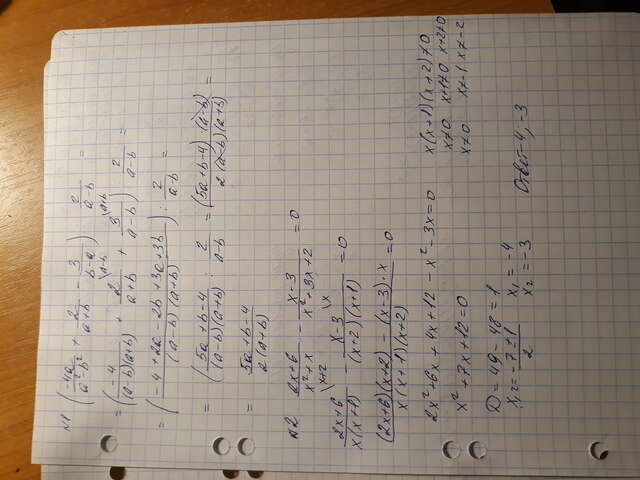 №1 ( -4a/(a²-b²) + 2/(a+b) - 3/(b-a) ) : 2/(a-b) =
= ( -4/((a-b)(a+b)) + 2/(a+b) \a-b + 3/(a-b) \a+b ) 2/(a-b) =
= ( (-4+2a-2b+3a+3b)/((a-b)(a+b)) ) : 2/(a-b) =
= ( (5a+b-4)/((a-b)(a+b)) : 2/(a-b) = ((5a+b-4)·(a-b))/(2(a-b)(a+b)) =
= (5a+b-4)/(2(a+b))
№2 (2x+6)/(x²+x) - (x-3)/(x²+3x+2) = 0
(2x+6)/(x(x+1)) \x+2 - (x-3)/((x+2)(x+1)) \x = 0
((2x+6)(x+2) - (x-3)·x)/(x(x+1)(x+2)) = 0
2x²+6x+4x+12-x²-3x=0 x(x+1)(x+2)≠0
x≠0 x+1≠0 x+2≠0
x²+7x+12=0 x≠0 x≠-1 x≠-2
D=49-48=1
x₁,₂=(-7±1)/2 x₁=-4
x₂=-3 Ответ-4,-3